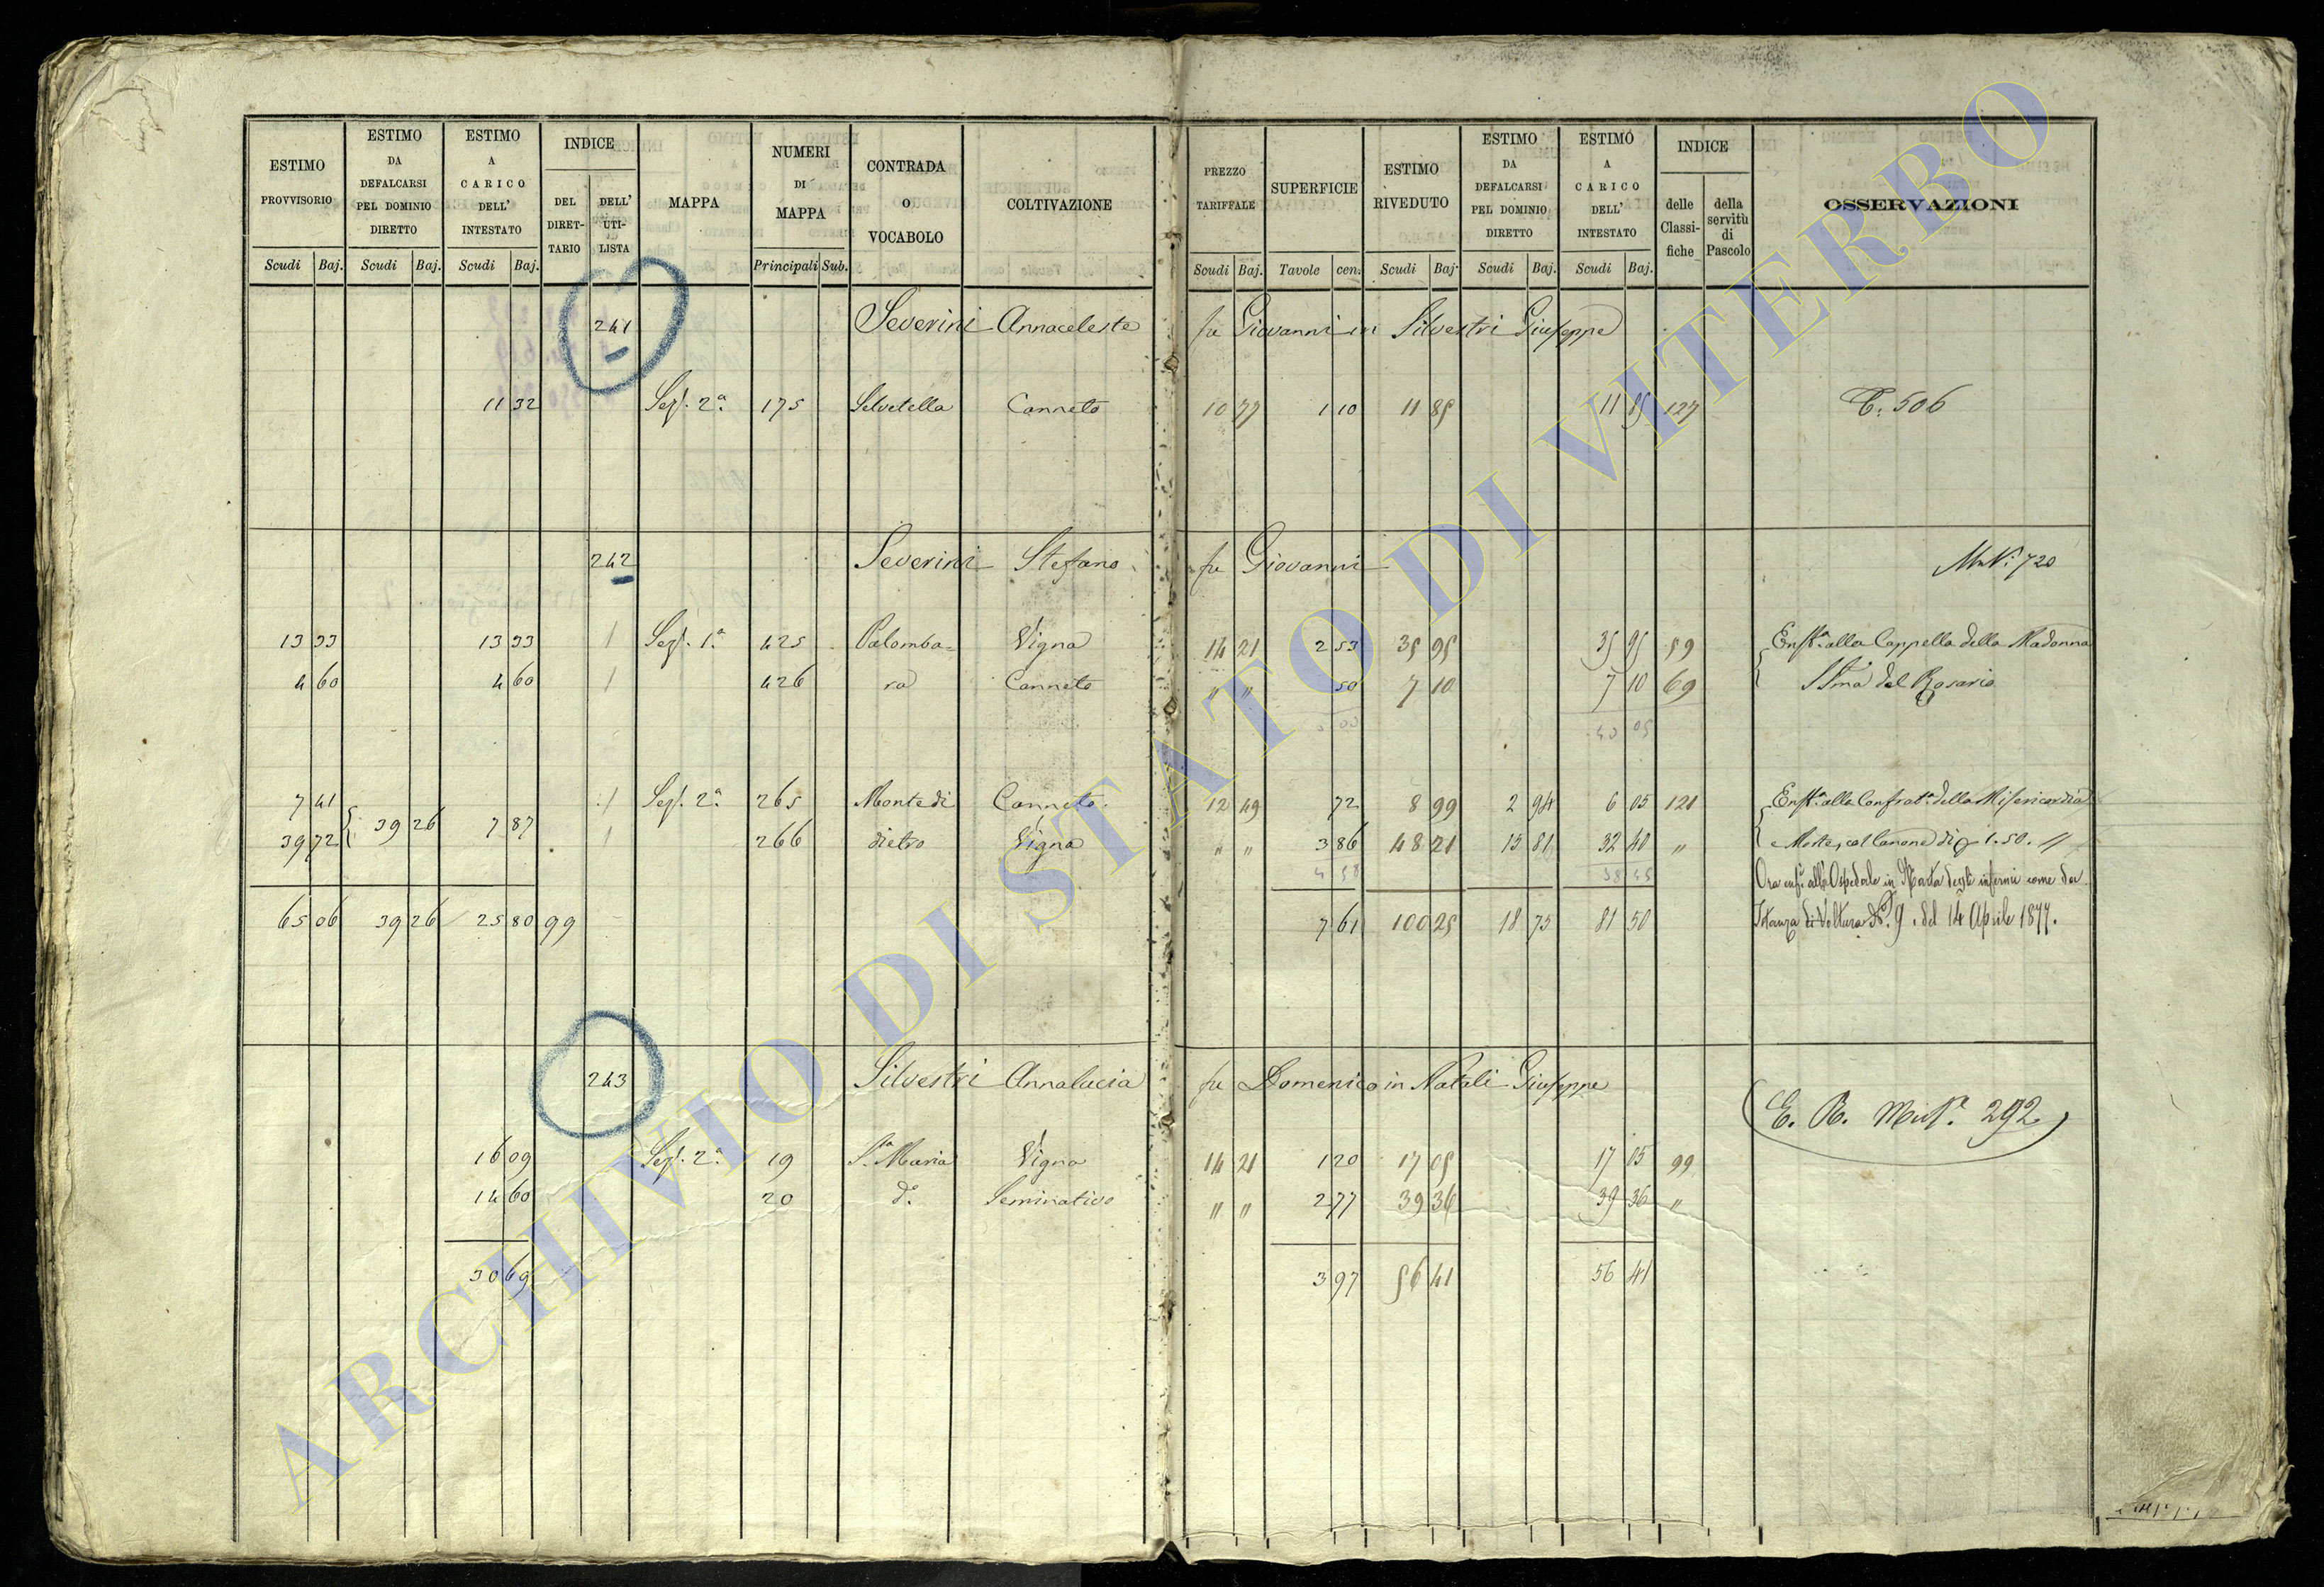 ESTIMO PROVVISORIO ESTIMO DA DEFALCARSI PEL DOMINIO DIRETTO ESTIMO A CARICO DELL' INTESTATO INDICE DEL DIRET- TARIO DELL' UTI- LISTA MAPPA NUMERI DI MAPPA CONTRADA O VOCABOLO COLTIVAZIONE PREZZO TARIFFALE SUPERFICIE ESTIMO RIVEDUTO ESTIMO DA DEFALCARSI PEL DOMINIO DIRETTO ESTIMO A CARICO DELL' INTESTATO INDICE delle Classi- fiche della servitù di Pascolo OSSERVAZIONI
Scudi Baj. Scudi Baj. Scudi Baj. Principali Sub. Scudi Baj. Tavole cen. Scudi Baj. Scudi Baj. Scudi Baj.
241 Severini Annaceleste fu Giovanni in Silvestri Giuseppe
11 32 Sez. 2ª 175 Selvetella Canneto 10 77 1 10 11 85 11 85 127 C. 506
242 Severini Stefano fu Giovanni Mut. 720
13 33 13 33 1 Sez. 1ª 425 Palomba= Vigna 14 21 2 53 35 95 35 95 59 Enfta alla Cappella della Madonna
4 60 4 60 1 426 ra Canneto " " 50 7 10 7 10 69 SSma del Rosario
3 03 43 05
7 41 1 Sez. 2ª 265 Monte di Canneto 12 49 72 8 99 2 94 6 05 121 Enfta alla Confrat. della Misericordia
39 72 39 26 7 87 1 266 dietro Vigna " " 3 86 48 21 15 81 32 40 " e Morte, col Canone di 1.50. //
4 58 38 45 Ora enf. all'Ospedale in Marta degli infermi come da
65 06 39 26 25 80 99 7 61 100 25 18 75 81 50 Istanza di Voltura No. 9. del 14 Aprile 1877.
243 Silvestri Annalucia fu Domenico in Natali Giuseppe
E. R. Mut. 292
16 09 Sez. 2ª 19 S.ta Maria Vigna 14 21 1 20 17 05 17 05 99
14 60 20 do. Seminativo " " 2 77 39 36 39 36 "
30 69 3 97 56 41 56 41
ARCHIVIO DI STATO DI VITERBO